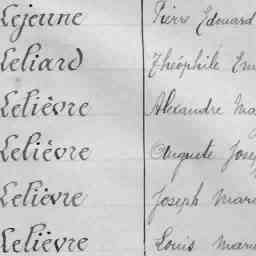 Lejeune Pierre Edouard
Leliard Théophile Em
Lelièvre Alexandre Ma
Lelièvre Auguste Jose
Lelièvre Joseph Mari
Lelièvre Louis Mari